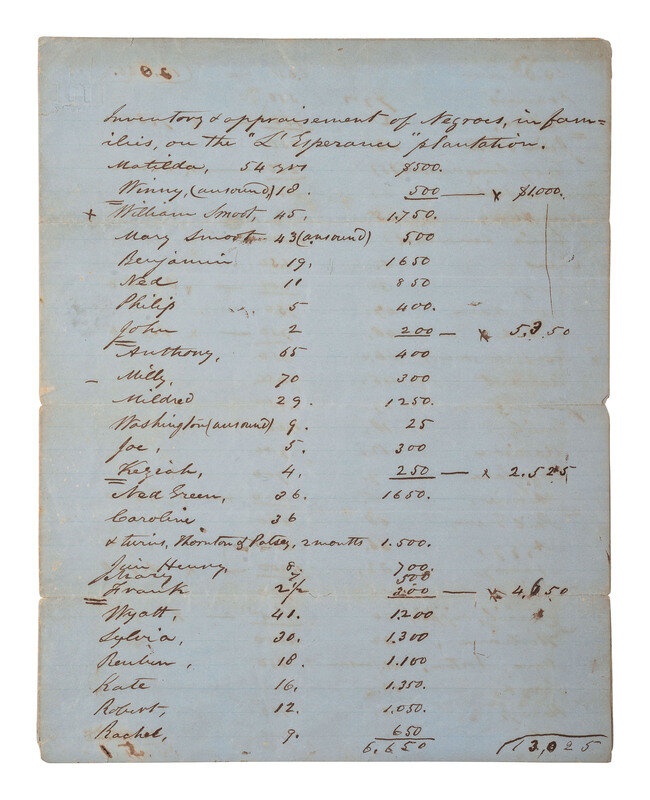 Inventory & appraisement of Negroes, in fam=
ilies, on the "L'Esperance" plantation.
Matilda, 54 yrs $500.
Winny, (unsound) 18. 500 — x $1.000.
+ William Smoot, 45. 1.750.
Mary Smoot 43 (unsound) 500
Benjamin 19. 1650
Ned 11 850
Philip 5 400.
John 2 200 — x 5.350
Anthony, 65 400
- Milly, 70 300
Mildred 29. 1250.
Washington (unsound) 9. 25
Joe, 5. 300
Keziah, 4. 250 — x 2.525
Ned Green, 36. 1650.
Caroline 36
& twins, Thornton & Patsey, 2 months 1.500.
Henry 8. 700.
Mary 7 500
Frank 2 1/2 300 — x 4.650
Wyatt, 41. 1.200
Sylvia, 30. 1.300
Reuben, 18. 1.100
Kate 16. 1.350.
Robert, 12. 1.050.
Rachel, 9. 650
6.650 13,025